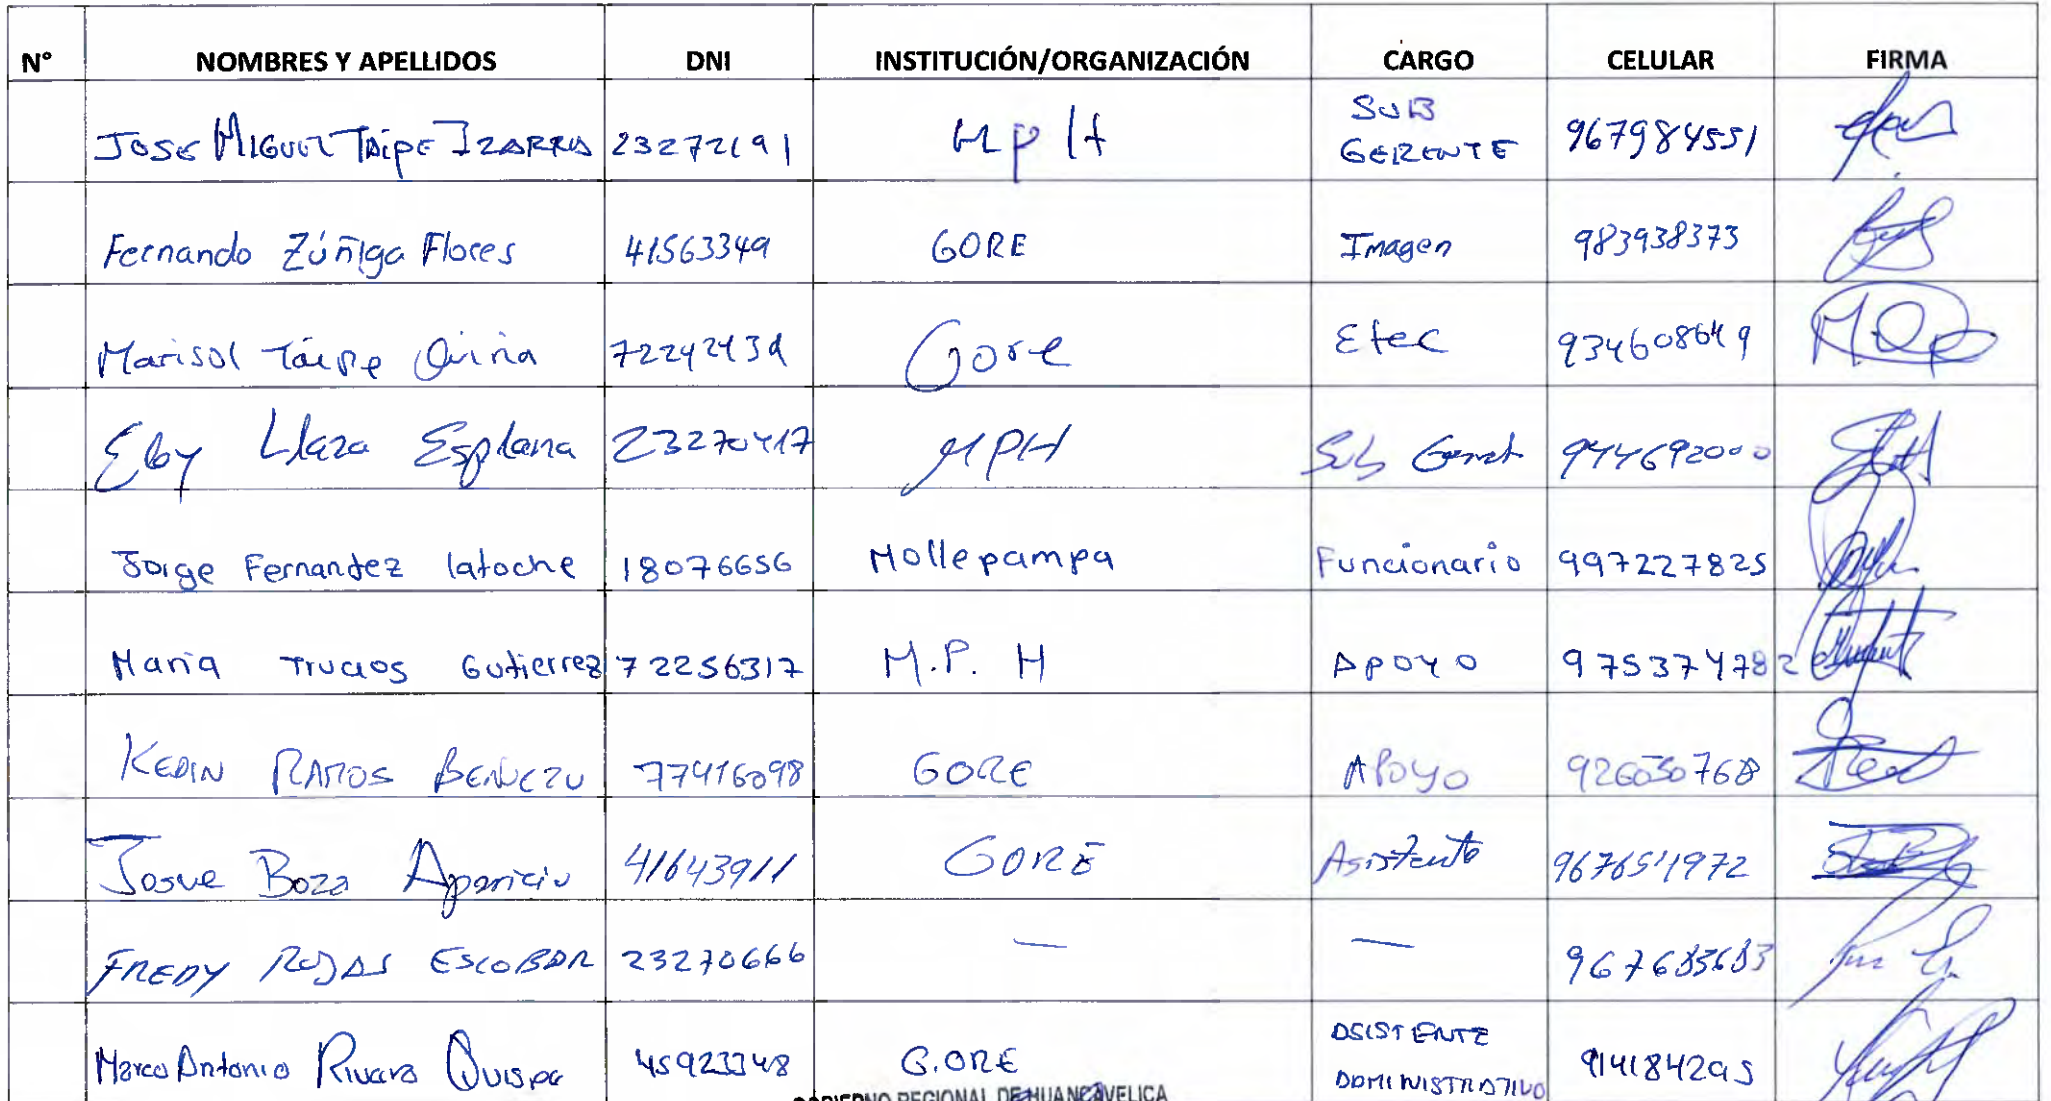 N° NOMBRES Y APELLIDOS DNI INSTITUCIÓN/ORGANIZACIÓN CARGO CELULAR FIRMA
JOSE MIGUEL TAIPE IZARRA 23272191 MPH SUB GERENTE 967984551
Fernando Zúñiga Flores 41563349 GORE Imagen 983938373
Marisol Taipe 72242439 Gore Etec 934608649
Eby Llaza Esplana 23270417 MPH Sub Gerent 944692000
Jorge Fernandez latoche 18076656 Mollepampa Funcionario 997227825
Maria Trucios Gutierrez 72256317 M.P. H Apoyo 975374782
KEDIN RAMOS BENDEZU 77416098 GORE APOYO 926030768
Josue Boza Aparicio 41643911 GORE Asistente 967651972
FREDY ROJAS ESCOBAR 23270666 — — 967683683
Marco Antonio Rivera Quispe 45923348 G.ORE ASISTENTE ADMINISTRATIVO 914184295
GOBIERNO REGIONAL DE HUANCAVELICA